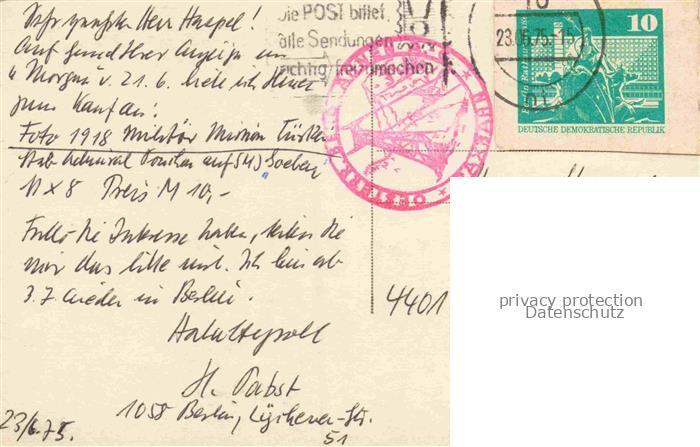 Sehr geehrter Herr Haepel!
Auf Grund Ihrer Anzeige im
"Morgen" v. 21. 6. biete ich Ihnen
zum Kauf an:
Foto 1918 Militär Mission Türkei
Admiral Souchon auf SMS Goeben
11 x 8 Preis M 10,-
Falls Sie Interesse haben, teilen Sie
mir das bitte mit. Ich bin ab
3.7. wieder in Berlin.
Hochachtungsvoll
H. Pabst
1058 Berlin, Lychener Str.
51
23/6.75.
Die POST bittet,
alle Sendungen
richtig freizumachen
23.06.75-15
10
DEUTSCHE DEMOKRATISCHE REPUBLIK
4401
privacy protection
Datenschutz